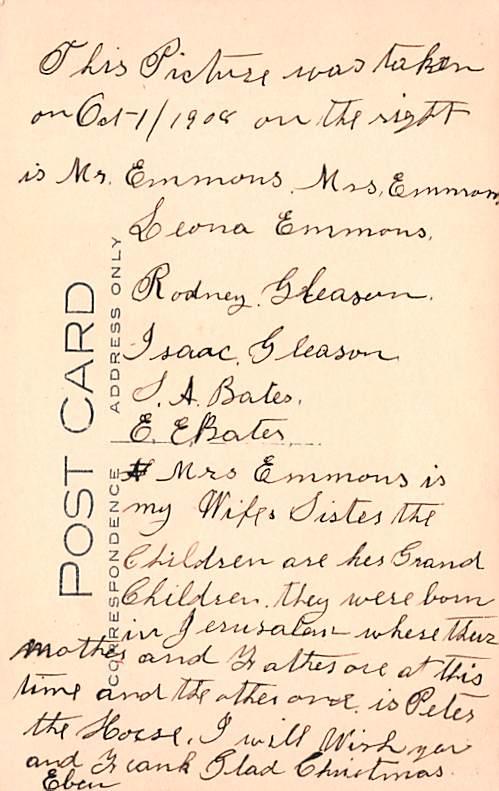 This Picture was taken
on Oct 1/1908 on the right
is Mr. Emmons. Mrs, Emmons
Leona Emmons,
Rodney. Gleason.
Isaac. Gleason.
S. A. Bates.
E. E. Bates.
Mrs Emmons is
my Wifes Sister the
Children are her Grand
Children. they were born
in Jerusalam where their
mother and Father are at this
time and the other one. is Peter
the Horse. I will Wish you
and Frank Glad Christmas.
Eben
POST CARD
CORRESPONDENCE ADDRESS ONLY